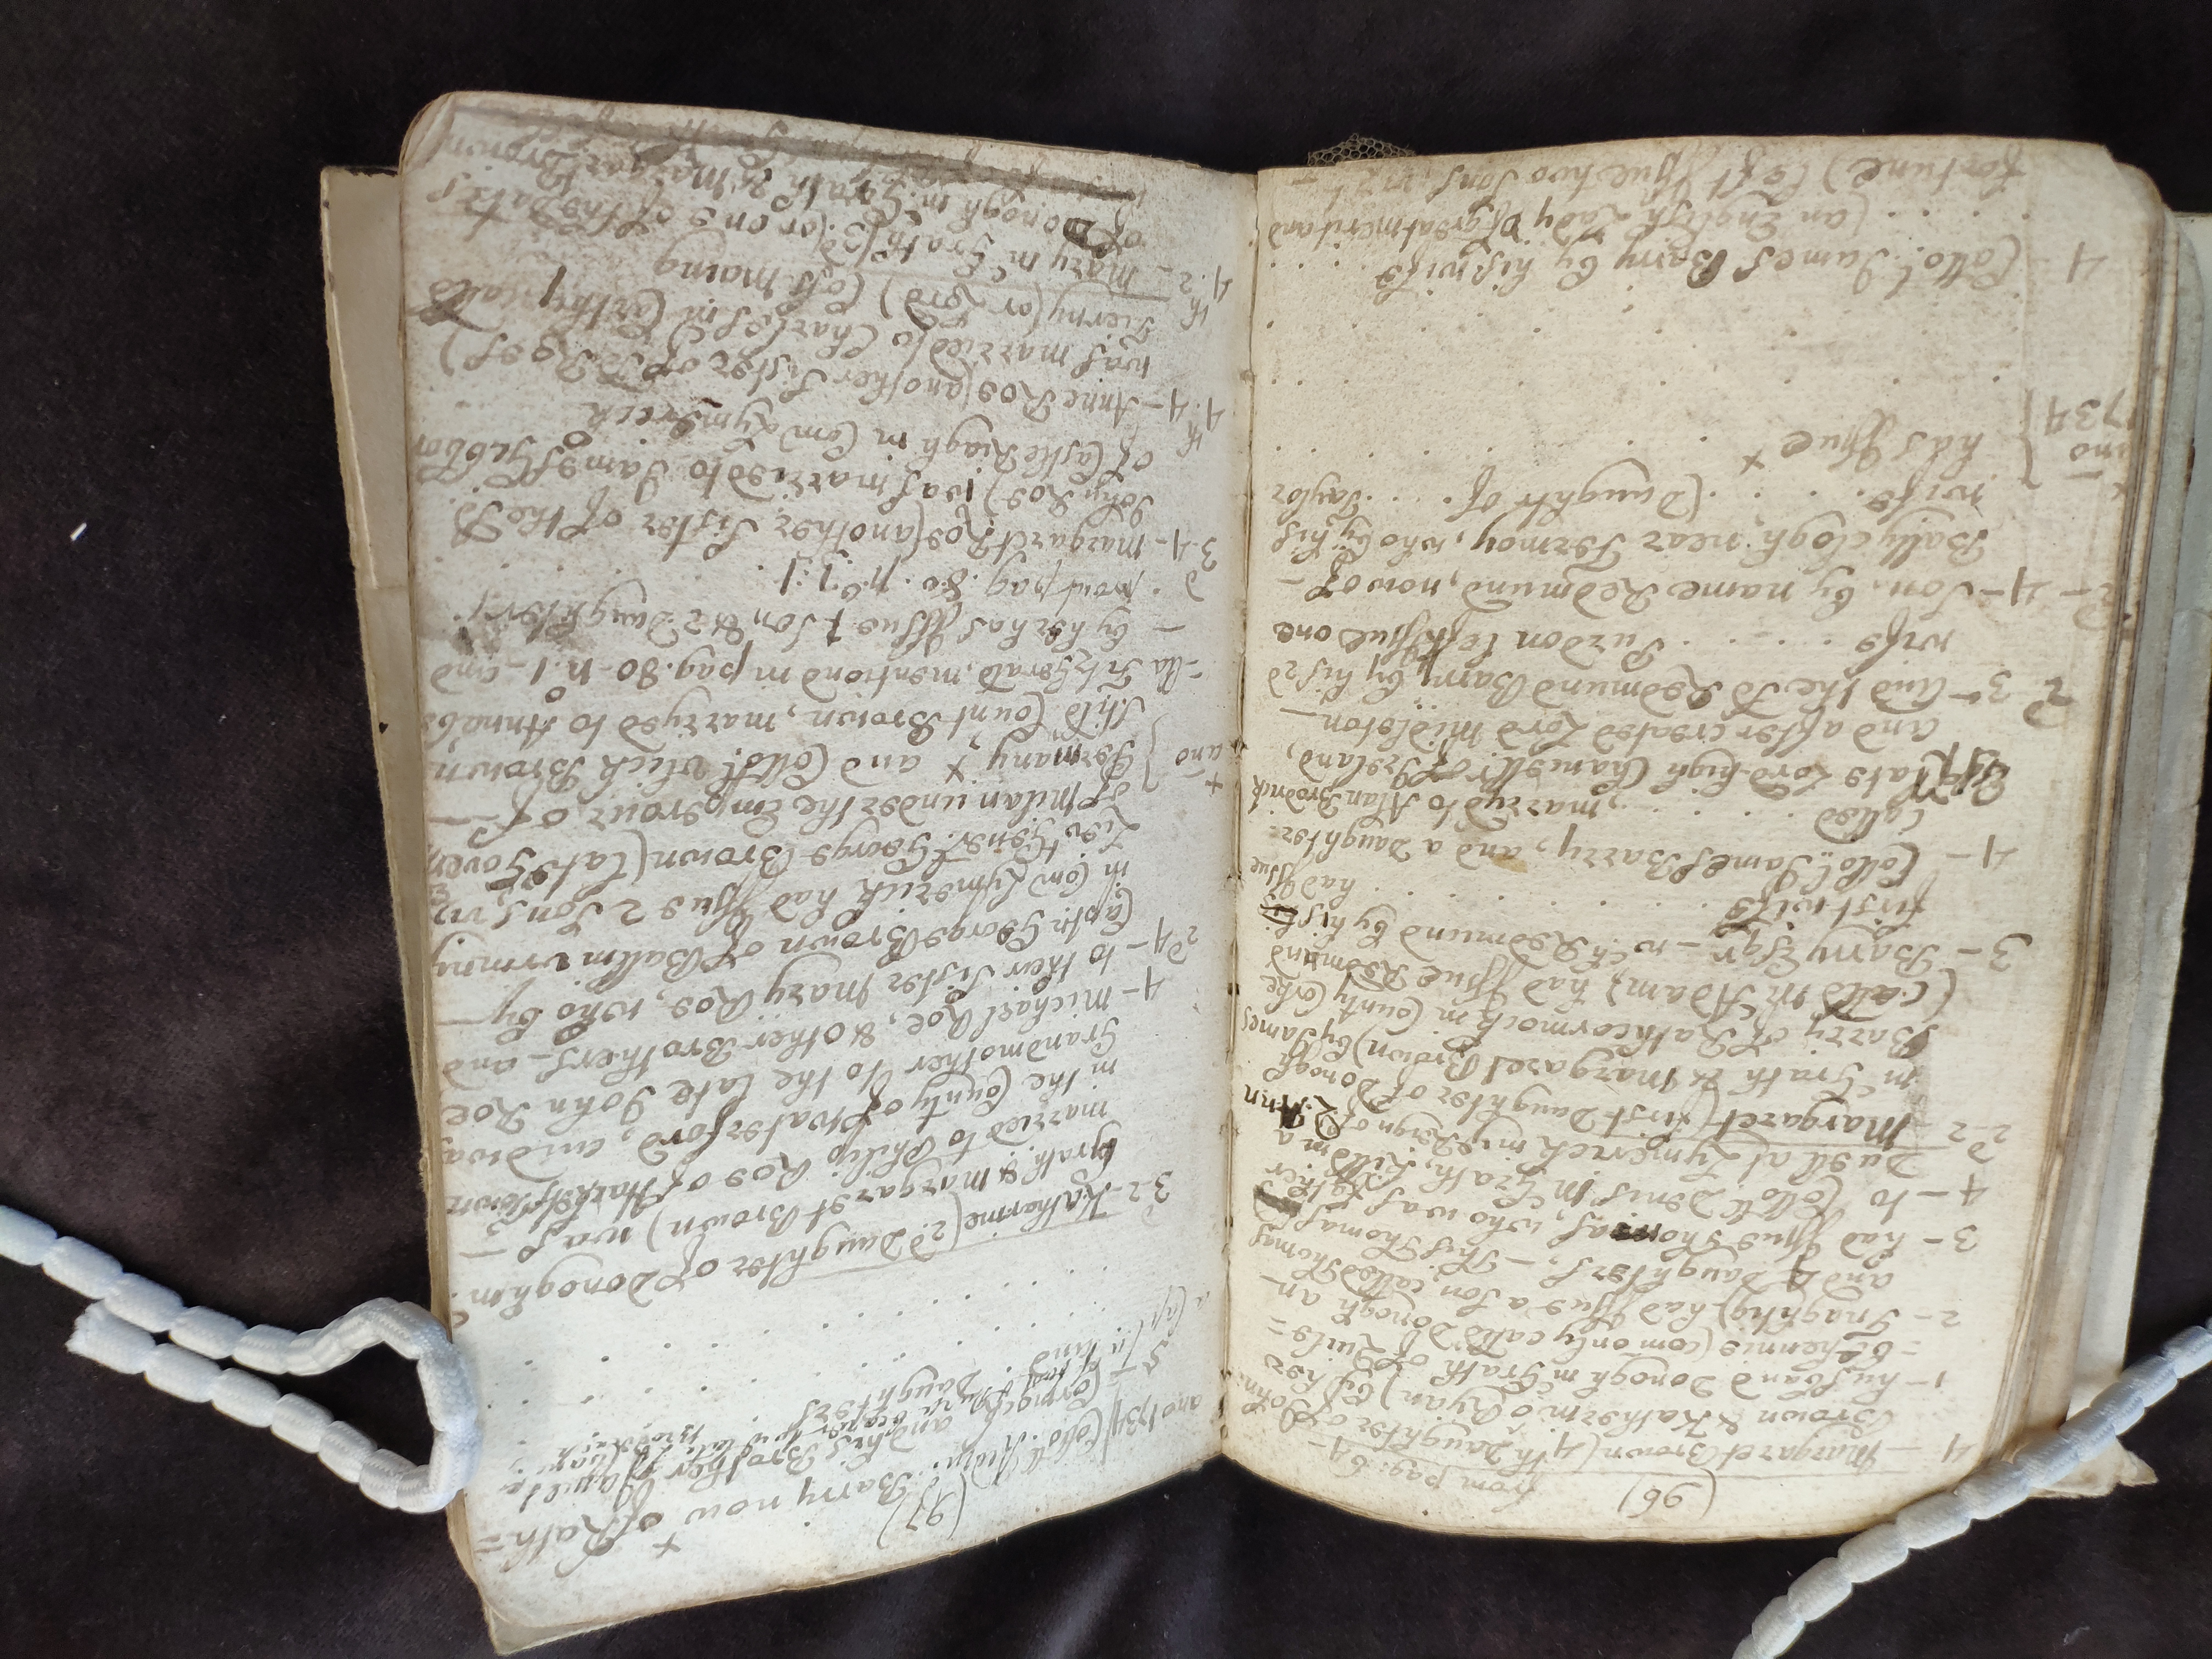 (96)
from pag: 64
4 — Margaret Brown (4th Daughter of John
Brown & Katherin o Ryan) by her
1 — husband Donogh mc Grath of Ruile=
=bikennie (comonly calld Donogh an
2 — Inaghtig) had Issue a Son called Thomas
and 4 Daughters, — this Thomas
3 — had Issue Thomas, who was father
4 — to Collo Denis mc Grath, killd in a
Duell at Lymerick in ye Reign of Q: Ann
2d 2 — Margaret (first Daughter of Donogh
mc Grath & Margaret Brown) by James
Barry of Rathcormock in County Corke
(calld mc Adam) had Issue Redmund
3 — Barry Esqr — wch Redmund by his
first wife . . . . . . had Issue
4 — Collo: James Barry, and a Daughter
called . . . . , marryd to Alan Brodrick
Esqr late Lord high Chancellr of Ireland,
and after created Lord Midleton —
2d 3 — and the sd Redmund Barry by his 2d
wife . . . . . Purdon left Issue one
2d — 4 — Son, by name Redmund, now of —
Ballyclogh, near Fermoy, who by his
wife . . . . . (Daughtr of . . . Taylor
has Issue x
x
ano
1734
4 Collo: James Barry by his wife
. . . . (an English Lady of great merit and
fortune) left Issue two Sons, vizt —
(97)
x
ano 1734 Collo: Redmd: Barry now of Rath=
Cormick, and his Brother James
Daughters
3d 2 — Katharine (2d Daughter of Donogh mc
Grath & Margaret Brown) was —
married to Philip Roe of Hacketstown
in the County of Waterford, and was
Grandmother to the late John Roe
4 — Michael Roe, & other Brothers — and
to their Sister Mary Roe, who by —
2d 4 — Capt: George Brown of Ballinvirniny
in Com Lymerick had Issue 2 Sons vizt
Lieut Generl George Brown (late Gover
of Milan under the Emperour of —
x
ano
Germany, x and Collol: Ulick Brown,
Stild Count Brown, marryed to Annabe
=lla FitzGerald, mentiond in pag. 80 — n: 1 — and
— by her has Issue 1 Son, & 2 Daughters.
. now pag. 80. no. 1:1 . . . .
3d 4 — Margaret Roe (another Sister of the sd
John Roe) was married to James fz: Gibbon
of Castle Riagh in Com Lymerick
4th 4 — Anne Roe (another Sister of sd Roes)
was married to Charles mc Carthy, calld
Tierny (or Lord) Cosh-maing
4th 2 — Mary mc Grath (3d (or one of the Daters
of Donogh mc Grath & Margart Brown)